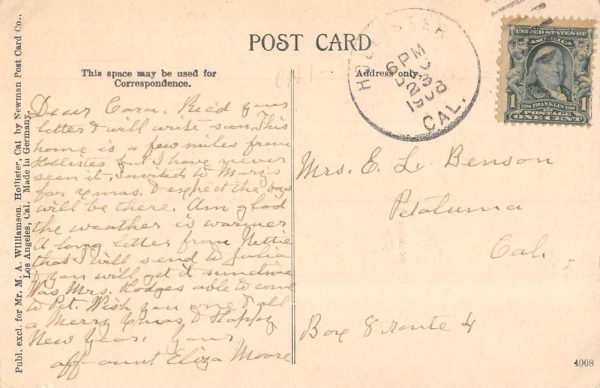 POST CARD
This space may be used for
Correspondence.
Address only.
HOLLISTER
6 PM
DEC
23
1908
CAL.
UNITED STATES OF AMERICA
FRANKLIN
POSTAGE
1 ONE CENT 1
Publ. excl. for Mr. M. A. Williamson, Hollister, Cal by Newman Post Card Co.,
Los Angeles, Cal. Made in Germany.
Dear Cara. Rec'd your
letter & will write soon. This
home is a few miles from
Hollister but I have never
seen it. Invited to Mary's
for Xmas. I expect the boys
will be there. Am glad
the weather is warmer.
A long letter from Nettie
that I will send to Julia
& you will get it sometime
Was Mrs. Hodges able to come
to Pet. Wish you one & all
a Merry Xmas & Happy
New Year. Your
aff- aunt Eliza Moore
Mrs. E. L. Benson
Petaluma
Cal.
Box 8 route 4
4008